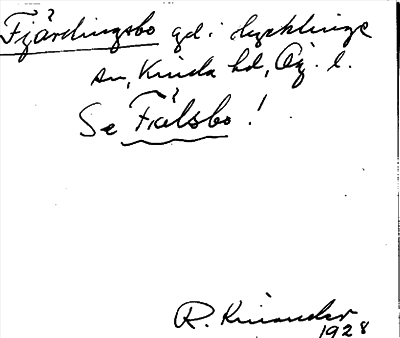 Fjärdingsbo gd i Hycklinge
sn, Kinda hd, Ög. l.
Se Fälsbo!
R. Kinander
1928